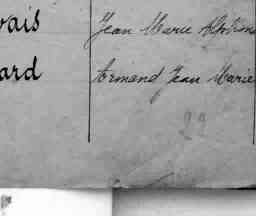 vais Jean Marie Alphons
ard Armand Jean Marie
22